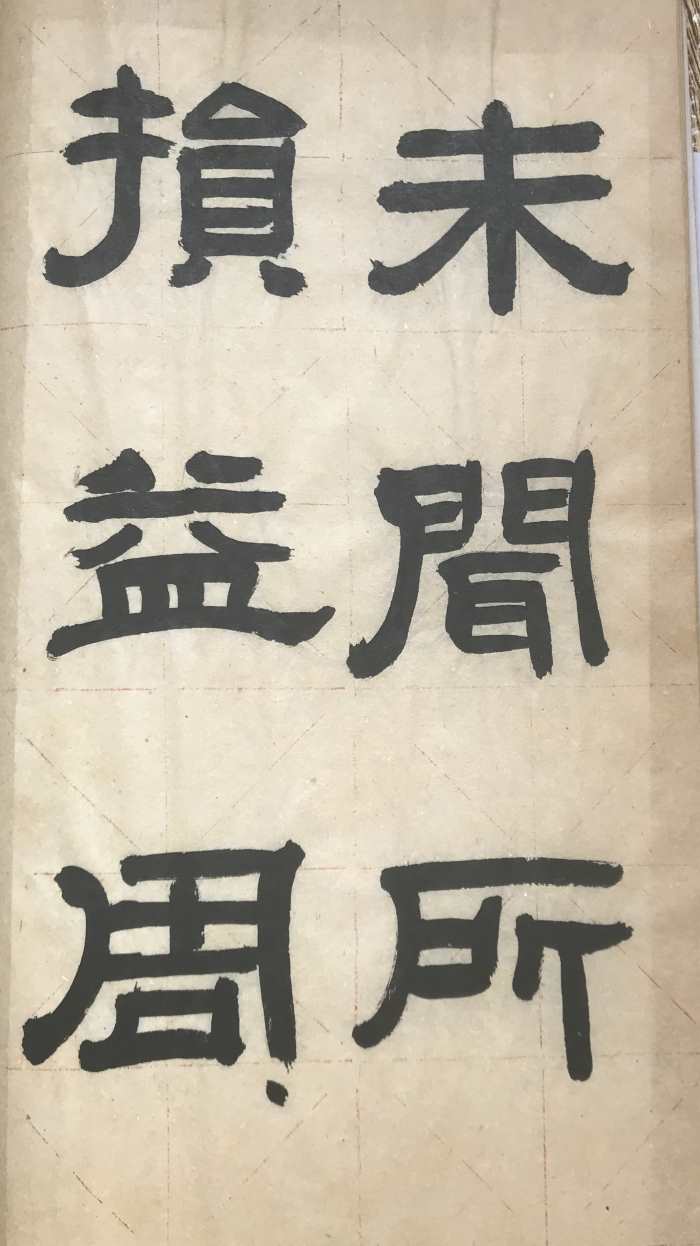 未聞所
損益周